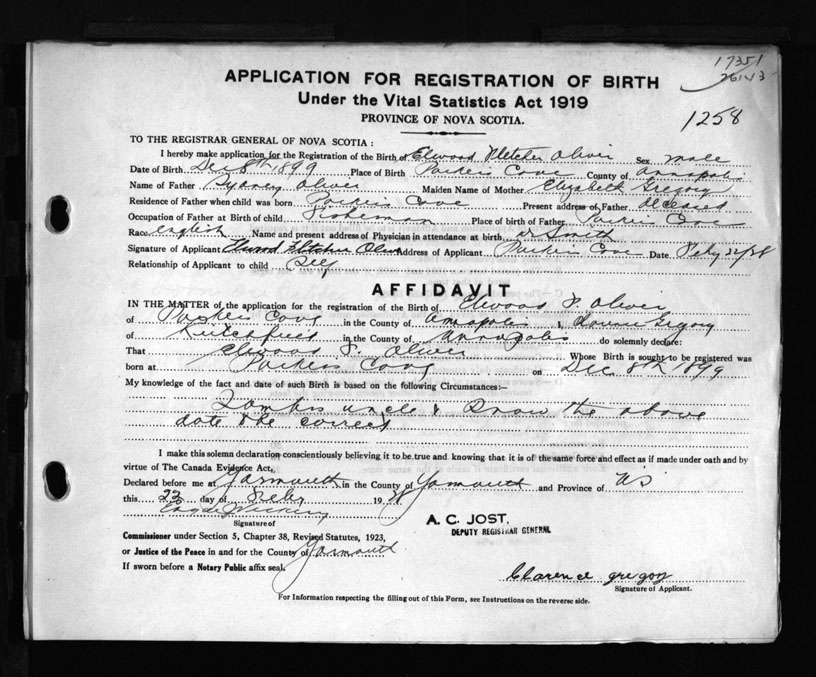 17351
26143
APPLICATION FOR REGISTRATION OF BIRTH
Under the Vital Statistics Act 1919
PROVINCE OF NOVA SCOTIA.
1258
TO THE REGISTRAR GENERAL OF NOVA SCOTIA :
I hereby make application for the Registration of the Birth of Elwood Fletcher Oliver Sex male
Date of Birth Dec 8th 1899 Place of Birth Parkers Cove County of Annapolis
Name of Father Sydney Oliver Maiden Name of Mother Elizabeth Gregory
Residence of Father when child was born Parkers Cove Present address of Father deceased
Occupation of Father at Birth of child Fisherman Place of birth of Father Parkers Cove
Race English Name and present address of Physician in attendance at birth Dr Smith
Signature of Applicant Elwood Fletcher Oliver Address of Applicant Parkers Cove Date Feby 22/38
Relationship of Applicant to child Self
AFFIDAVIT
IN THE MATTER of the application for the registration of the Birth of Elwood F. Oliver
of Parkers Cove in the County of Annapolis I, Clarence Gregory
of Litchfield in the County of Annapolis do solemnly declare:
That Elwood F. Oliver Whose Birth is sought to be registered was
born at Parkers Cove on Dec 8th 1899
My knowledge of the fact and date of such Birth is based on the following Circumstances:–
I am his uncle & know the above
date to be correct
I make this solemn declaration conscientiously believing it to be true and knowing that it is of the same force and effect as if made under oath and by
virtue of The Canada Evidence Act,
Declared before me at Yarmouth in the County of Yarmouth and Province of NS
this 22 day of Feby 1938
Signature of
Commissioner under Section 5, Chapter 38, Revised Statutes, 1923,
or Justice of the Peace in and for the County of Yarmouth
If sworn before a Notary Public affix seal.
A. C. JOST,
DEPUTY REGISTRAR GENERAL
Clarence gregory
Signature of Applicant.
For Information respecting the filling out of this Form, see Instructions on the reverse side.